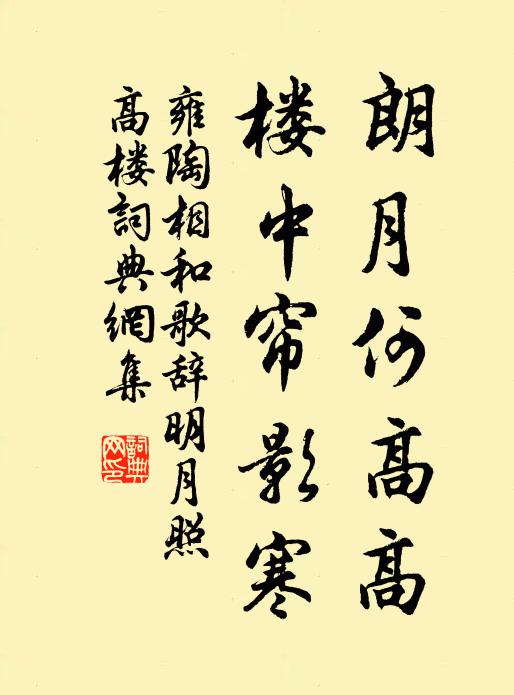 朗月何高高
楼中帘影寒
雍陶相和歌辞明月照
高楼詞典網集
詞典网印